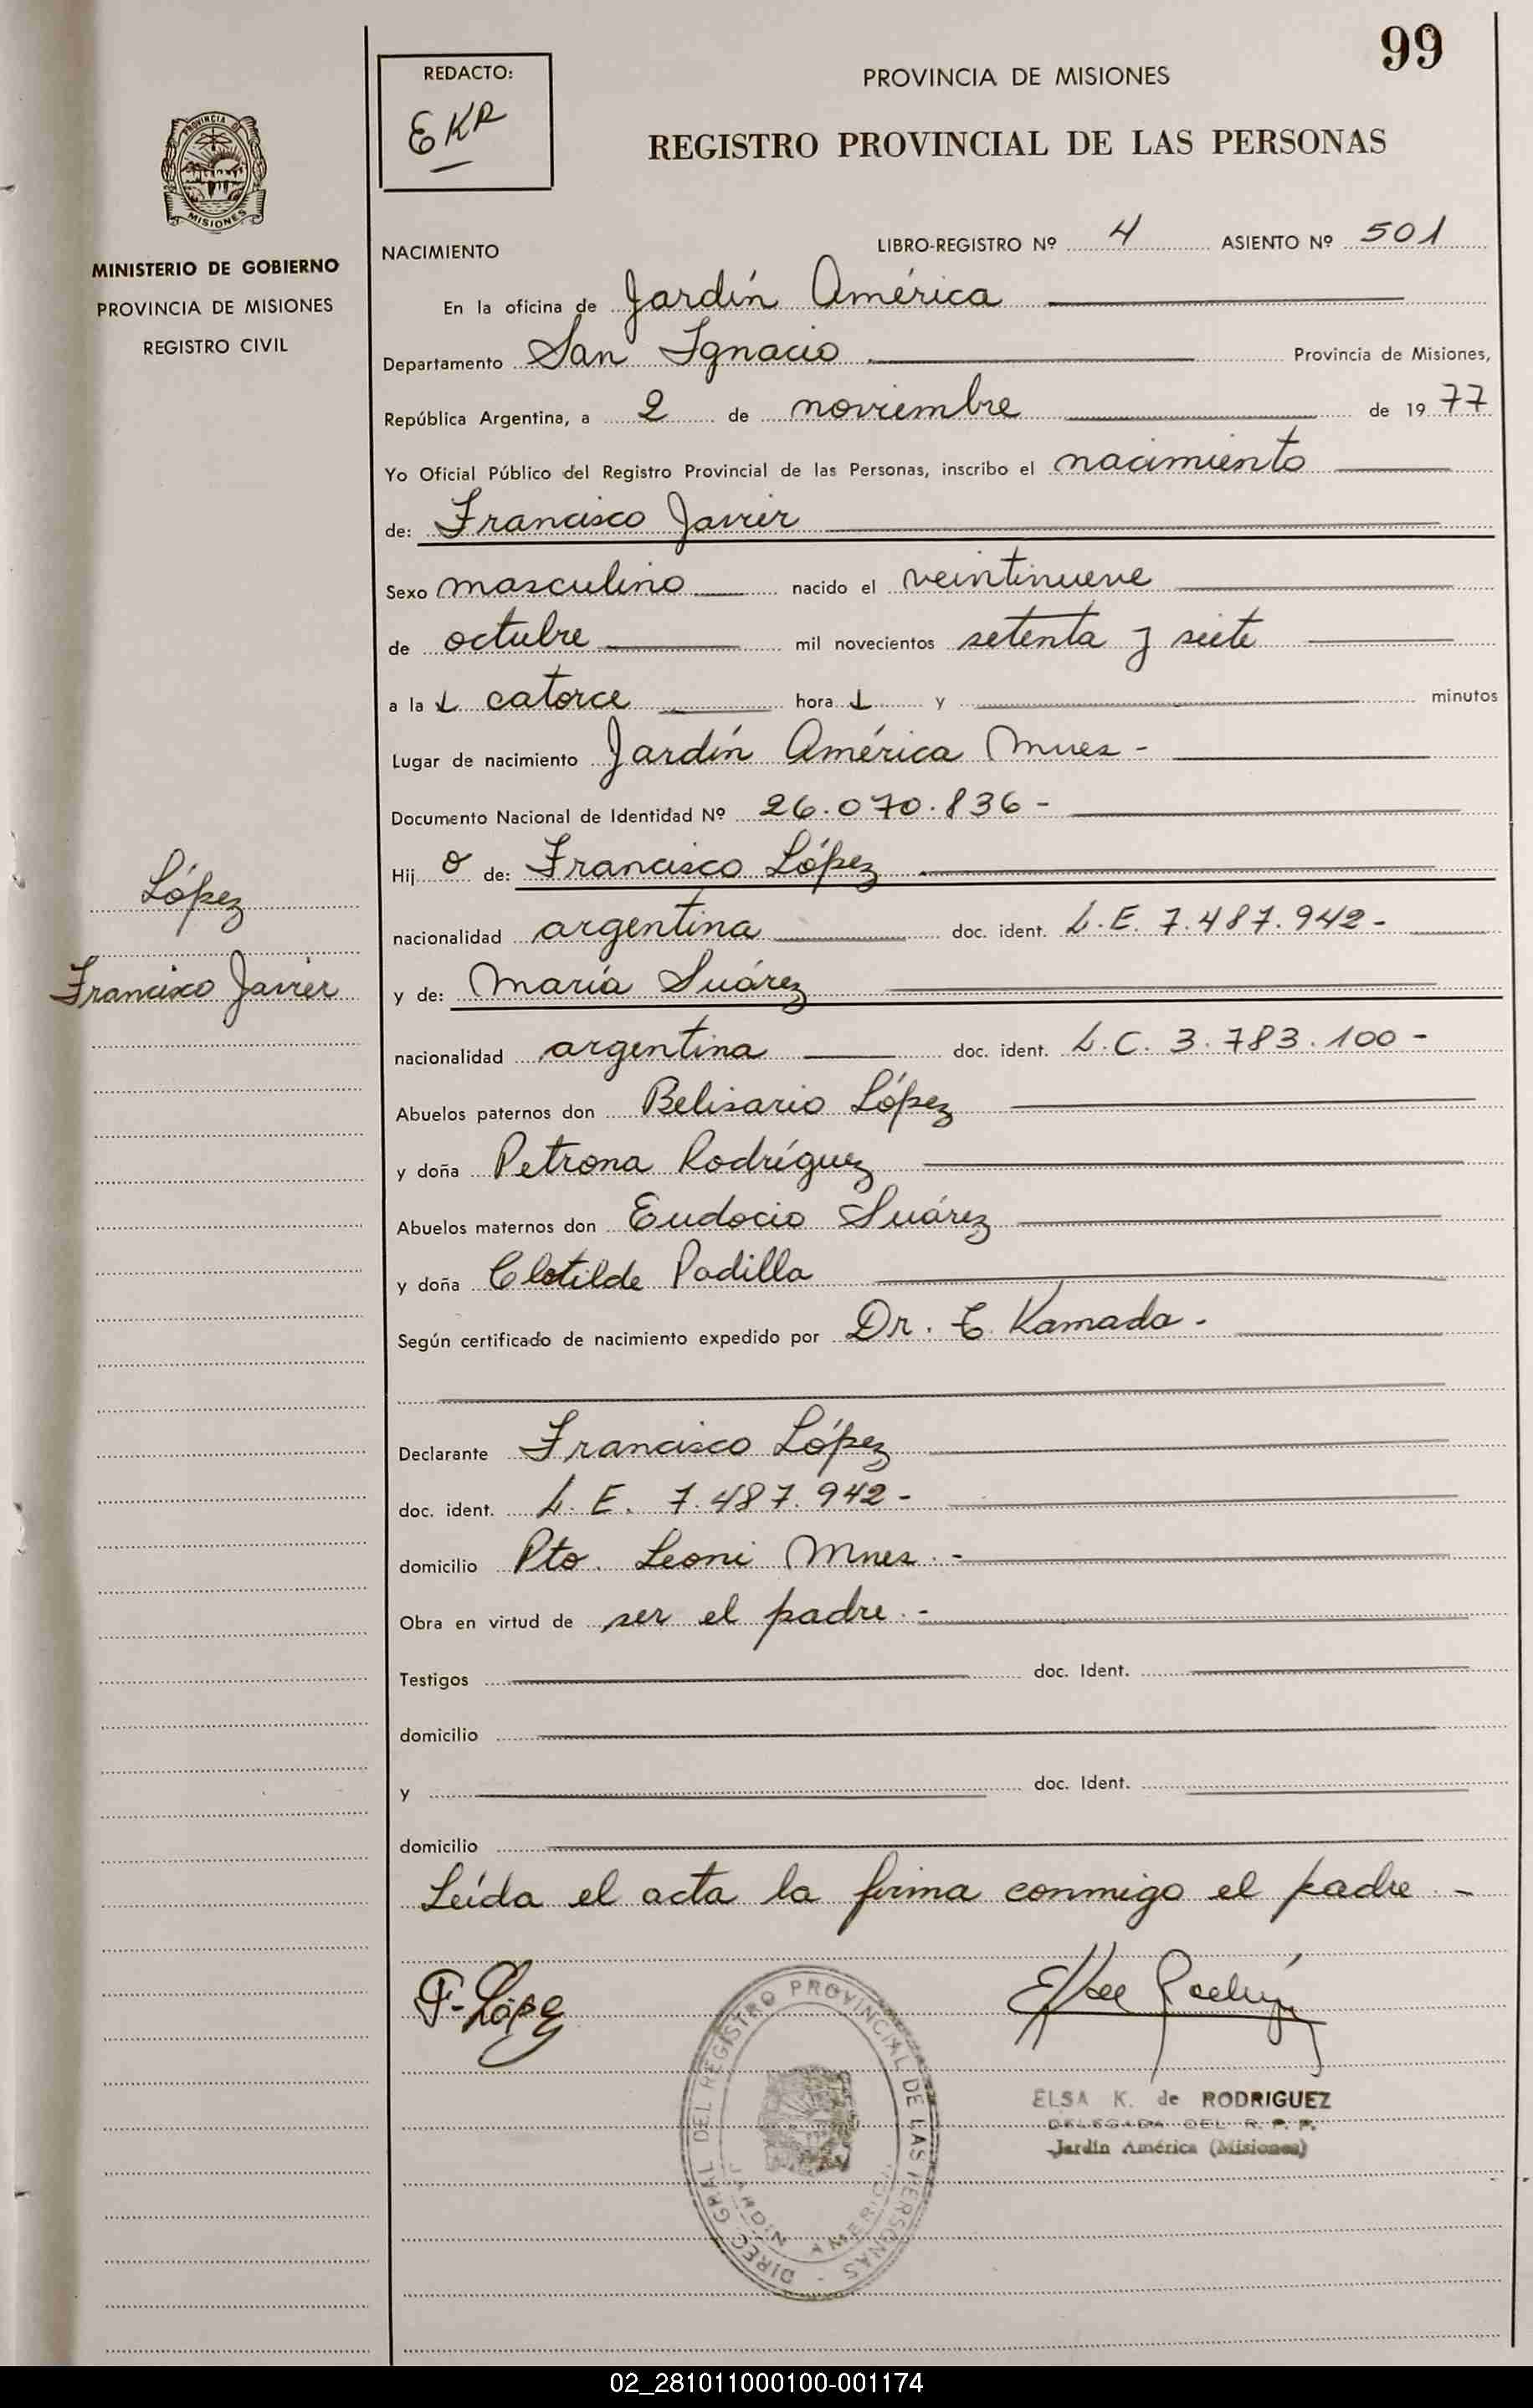 99
REDACTO:
EKR
PROVINCIA DE MISIONES
REGISTRO PROVINCIAL DE LAS PERSONAS
PROVINCIA DE
MISIONES
MINISTERIO DE GOBIERNO
PROVINCIA DE MISIONES
REGISTRO CIVIL
NACIMIENTO LIBRO-REGISTRO Nº 4 ASIENTO Nº 501
En la oficina de Jardín América
Departamento San Ignacio Provincia de Misiones,
República Argentina, a 2 de noviembre de 1977
Yo Oficial Público del Registro Provincial de las Personas, inscribo el nacimiento
de: Francisco Javier
Sexo masculino nacido el veintinueve
de octubre mil novecientos setenta y siete
a las catorce horas y minutos
Lugar de nacimiento Jardín América Mnes -
Documento Nacional de Identidad Nº 26.070.836 -
Hijo de: Francisco López
nacionalidad argentina doc. ident. L.E. 7.487.942 -
y de: María Suárez
nacionalidad argentina doc. ident. L.C. 3.783.100 -
Abuelos paternos don Belisario López
y doña Petrona Rodríguez
Abuelos maternos don Eudocio Suárez
y doña Clotilde Padilla
Según certificado de nacimiento expedido por Dr. E. Kamada -
Declarante Francisco López
doc. ident. L.E. 7.487.942 -
domicilio Pto. Leoni Mnes. -
Obra en virtud de ser el padre. -
Testigos doc. Ident.
domicilio
y doc. Ident.
domicilio
Leída el acta la firma conmigo el padre. -
López
Francisco Javier
F. López
DIREC. GRAL. DEL REGISTRO PROVINCIAL DE LAS PERSONAS -
JARDIN AMERICA
ELSA K. de RODRIGUEZ
DELEGADA DEL R. P. P.
Jardín América (Misiones)
02_281011000100-001174